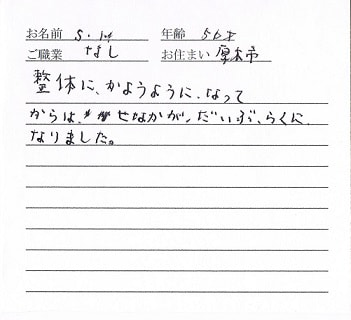 お名前 S.M 年齢 56才
ご職業 なし お住まい 厚木市
整体に、かようように、なって
からは、せなかが、だいぶ、らくに、
なりました。